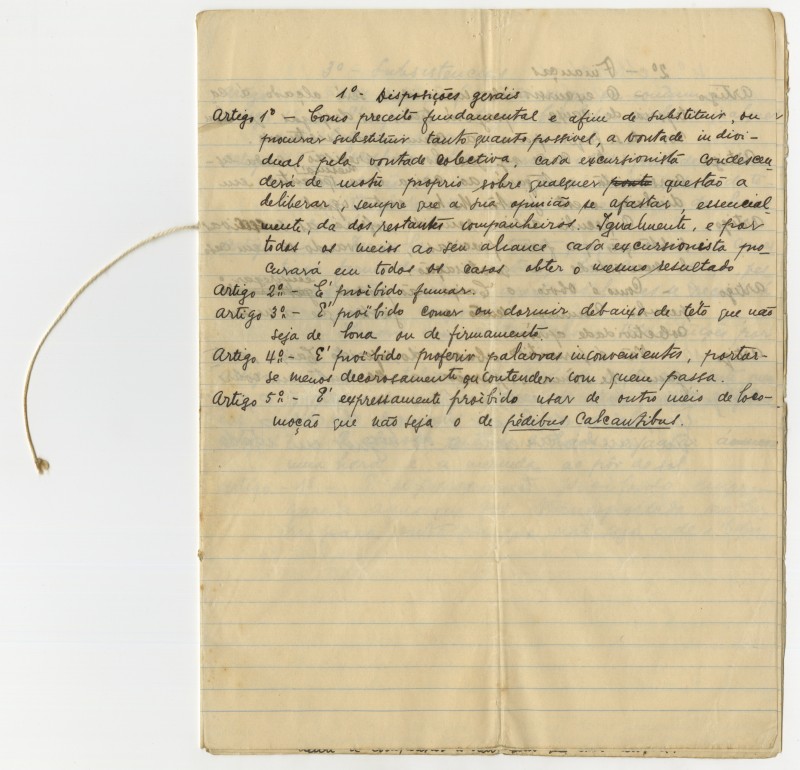 1º - Disposições gerais
Artigo 1º - Como preceito fundamental e afim de substituir, ou
procurar substituir tanto quanto possivel, a vontade indivi-
dual pela vontade colectiva, cada excursionista condescen-
derá de motu proprio sobre qualquer ponto questão a
deliberar, sempre que a sua opinião se afastar, essencial-
mente, da dos restantes companheiros. Igualmente, e por
todos os meios ao seu alcance cada excursionista pro-
curará em todos os casos obter o mesmo resultado
Artigo 2º - É proibido fumar.
Artigo 3º - É proïbido comer ou dormir debaixo de teto que não
seja de lona ou de firmamento
Artigo 4º - É proïbido proferir palavras inconvenientes, portar-
se menos decorosamente ou contender com quem passa.
Artigo 5º - É expressamente proïbido usar de outro meio de loco-
moção que não seja o de pédibus calcantibus.